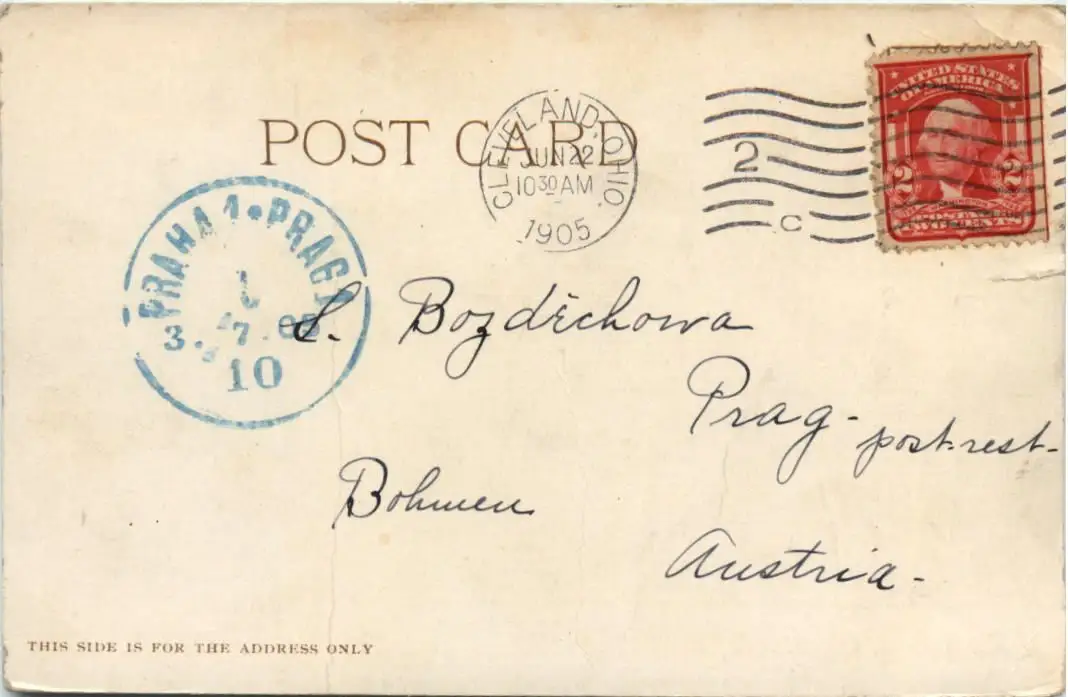 POST CARD
CLEVELAND, OHIO.
JUN 22
10 30 AM
1905
2
C
UNITED STATES
OF AMERICA
2 2
TWO CENTS
PRAHA 1 • PRAG 1
3. 7. 05
10
S. Bozděchowa
Prag - post-rest-
Bohmen
Austria -
THIS SIDE IS FOR THE ADDRESS ONLY